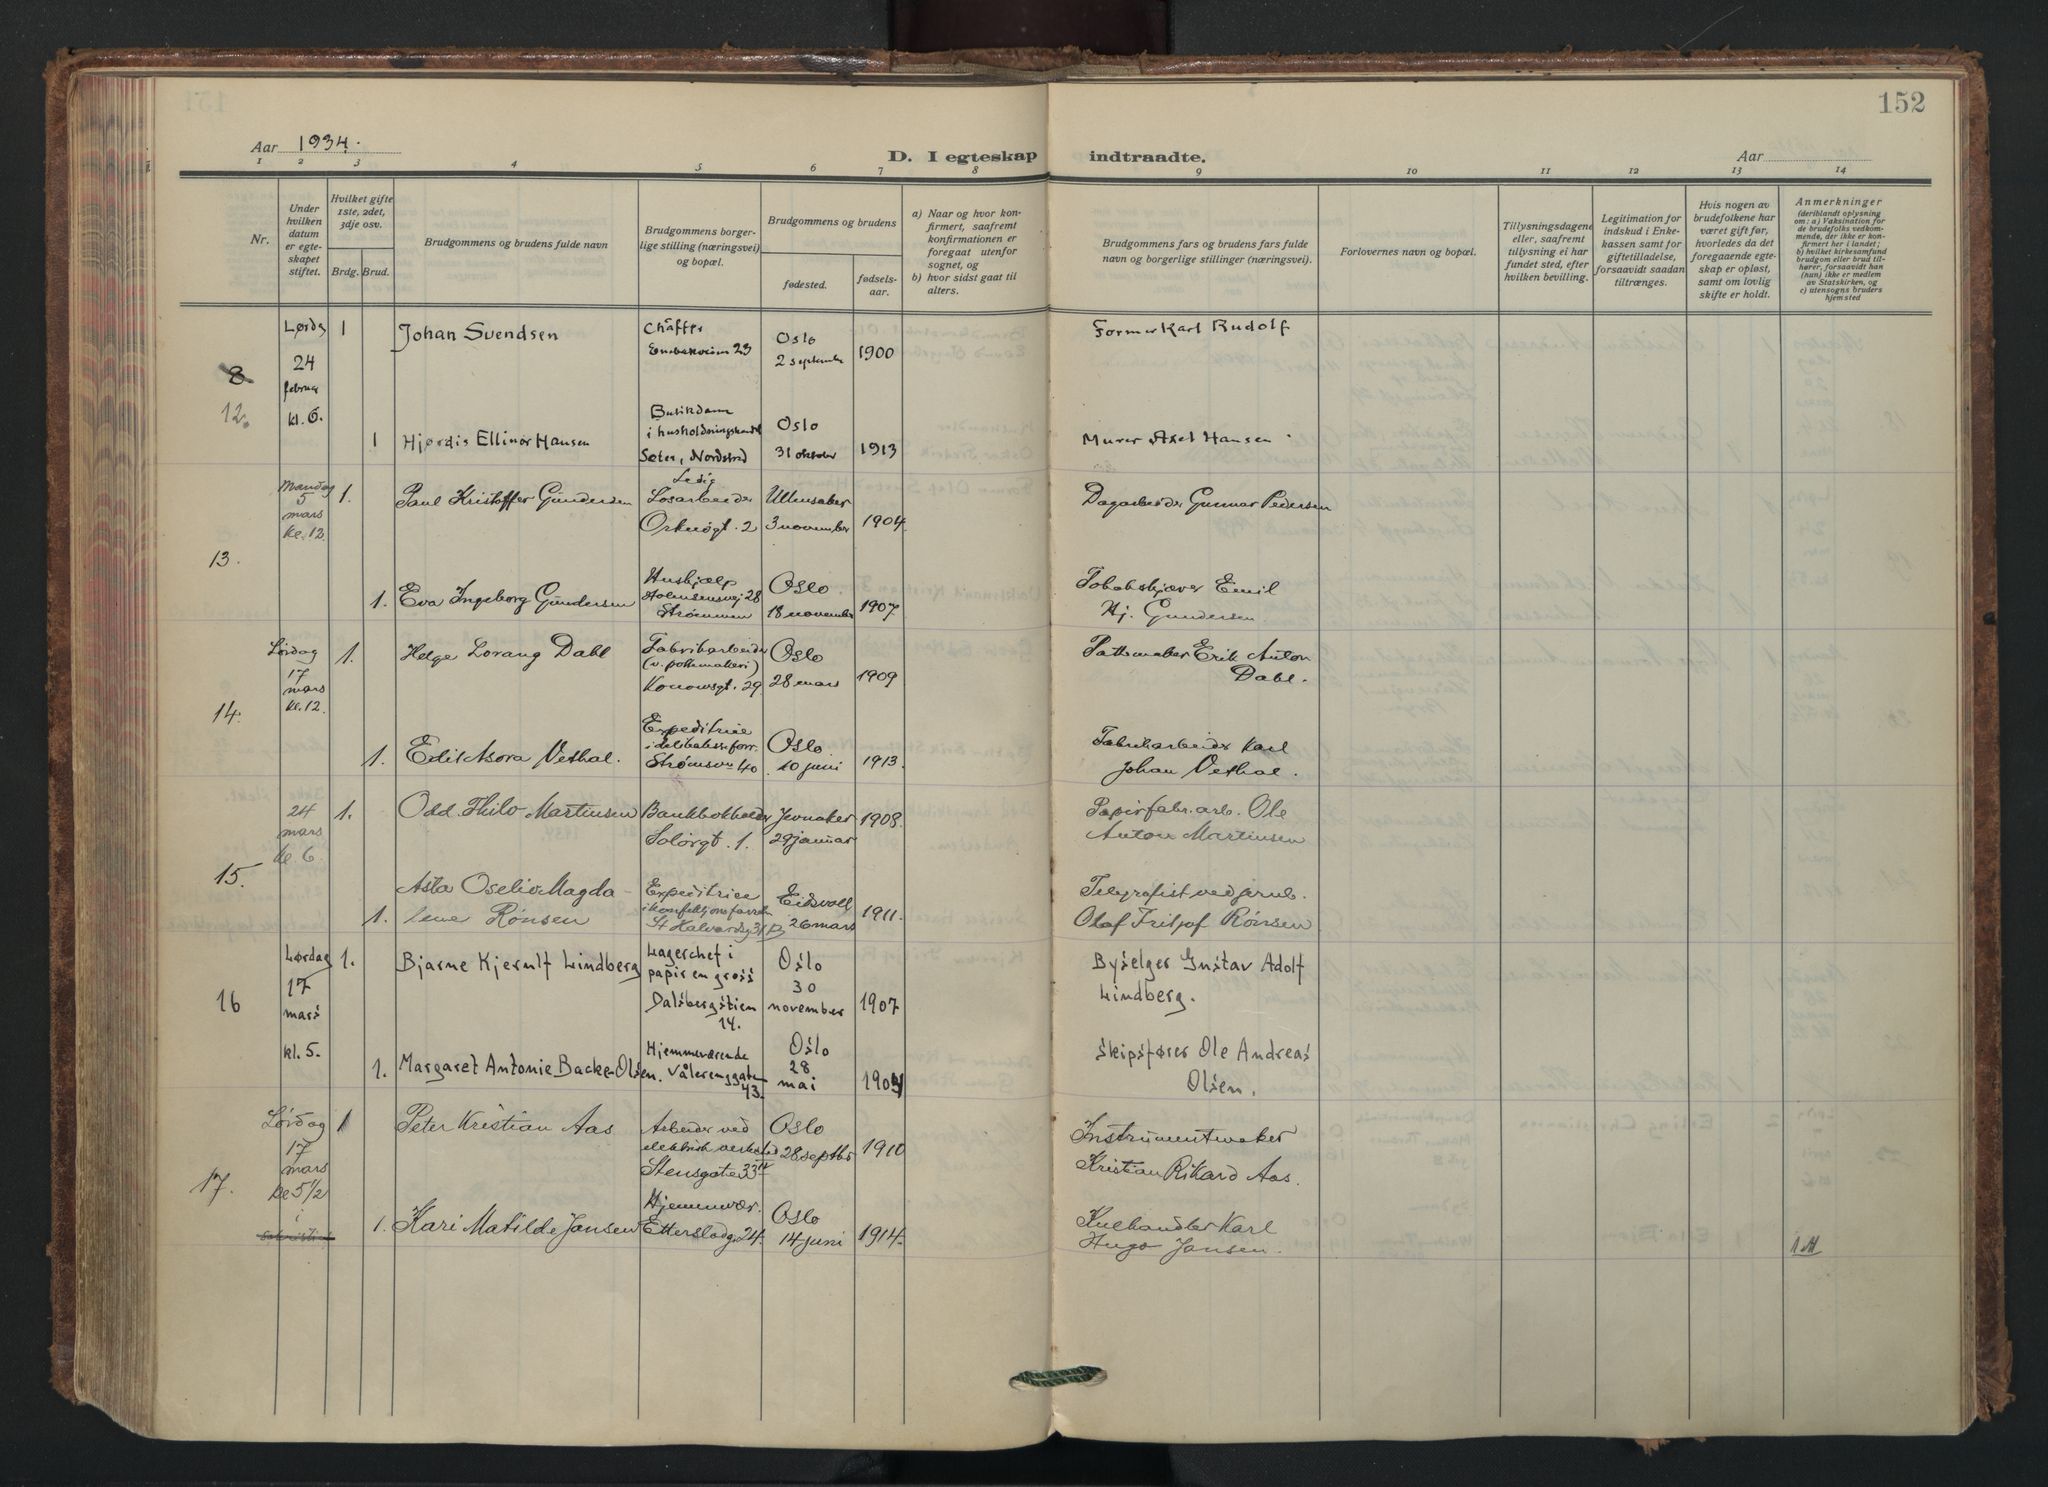 152
Aar 1934.
D. I egteskap indtraadte.
Aar
1 2 3 4 5 6 7 8 9 10 11 12 13 14
Nr.
Under hvilken datum er egteskapet stiftet.
Hvilket gifte 1ste, 2det, 3dje osv.
Brdg. Brud.
Brudgommens og brudens fulde navn
Brudgommens borgerlige stilling (næringsvei) og bopæl.
Brudgommens og brudens
fødested.
fødselsaar.
a) Naar og hvor konfirmert, saafremt konfirmationen er foregaat utenfor sognet, og
b) hvor sidst gaat til alters.
Brudgommens fars og brudens fars fulde navn og borgerlige stillinger (næringsvei).
Forlovernes navn og bopæl.
Tillysningsdagene eller, saafremt tillysning ei har fundet sted, efter hvilken bevilling.
Legitimation for indskud i Enkekassen samt for giftetilladelse, forsaavidt saadan tiltrænges.
Hvis nogen av brudefolkene har været gift før, hvorledes da det foregaaende egteskap er opløst, samt om lovlig skifte er holdt.
Anmerkninger
(deriblandt oplysning om: a) Vaksination for de brudefolks vedkommende, der ikke er konfirmert her i landet; b) hvilket kirkesamfund brudgom eller brud tilhører, forsaavidt han (hun) ikke er medlem av Statskirken, og c) utensogns bruders hjemsted
8
12.
Lørdg 24 februar kl. 6.
1 Johan Svendsen
Chäffør
23
Oslo
2 september 1900
Former Karl Rudolf
1 Hjørdis Ellinor Hansen
Butikdame
i husholdningshandel
Sæter, Nordstrad
Oslo
31 oktober 1913
Murer Axel Hansen
13.
Mandag 5 mars kl. 12
1. Paul Kristoffer Gundersen
Ledig
Løsarbeider
Orknøgt. 2
Ullensaker
3 november 1904.
Dagarbeider Gunnar Pedersen
1. Eva Ingeborg Gundersen
Hushjælp
Holmsensvej 28
Strømmen
Oslo
18 november 1907
Tobaksskjærer Emil
Hj. Gundersen.
14.
Lördag 17 mars kl. 12.
1. Helge Lorang Dahl
Fabrikarbeider
(v. pottemakeri)
Konowsgt. 29
Oslo
28 mars 1909
Pottemaker Erik Anton
Dahl.
1. Edit Asora Vethal.
Expeditrice
i delikatesseforr.
Strømsvn 40
Oslo
10 juni 1913.
Fabrikarbeider Karl
Johan Vethal.
15.
24 mars kl. 6.
1. Odd Thilo Martinsen
Bankbokholder
Solørgt. 1.
Jevnaker
29 januar 1908.
Papirfabr. arb. Ole
Anton Martinsen
1. Asta Oselie Magda-
lene Rönsen
Expeditrice
i konfektionsforretn
St Halvardsg 31 B
Eidsvoll
26 mars 1911.
Telegrafist ved jernb.
Olaf Fritjof Rönsen
16
Lørdag 17 mars kl. 5.
1. Bjarne Kjerulf Lindberg
Lagerchef i
papir en gross
Dalsbergstien
14.
Oslo
30
november 1907
Byselger Gustav Adolf
Lindberg.
1. Margaret Antonie Backe-Olsen.
Hjemmeværende
Vålerenggaten
43.
Oslo
28
mai 1904
Skipsfører Ole Andreas
Olsen.
17.
Lördag 17 mars kl 5 1/2
i
sakristiet
1 Peter Kristian Aas
Arbeider ved
elektrisk verksted
Stensgate 33 IV
Oslo
28 septbr 1910
Instrumentmaker
Kristian Rikard Aas.
1. Kari Matilde Jansen
Hjemmevær.
Etterstadg. 24.
Oslo
14 juni 1914.
Kulhandler Karl
Hugo Jansen.